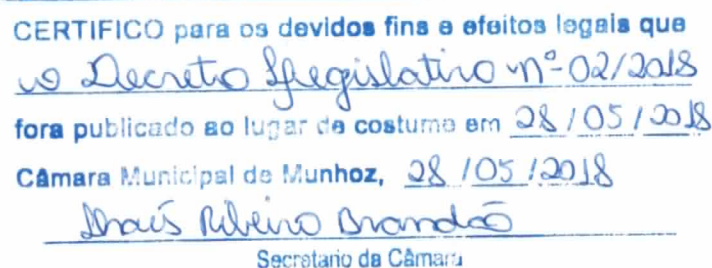 CERTIFICO para os devidos fins e efeitos legais que
o Decreto Legislativo nº 02/2018
fora publicado ao lugar de costume em 28/05/2018
Câmara Municipal de Munhoz, 28/05/2018
Thaís Ribeiro Brandão
Secretario da Câmara